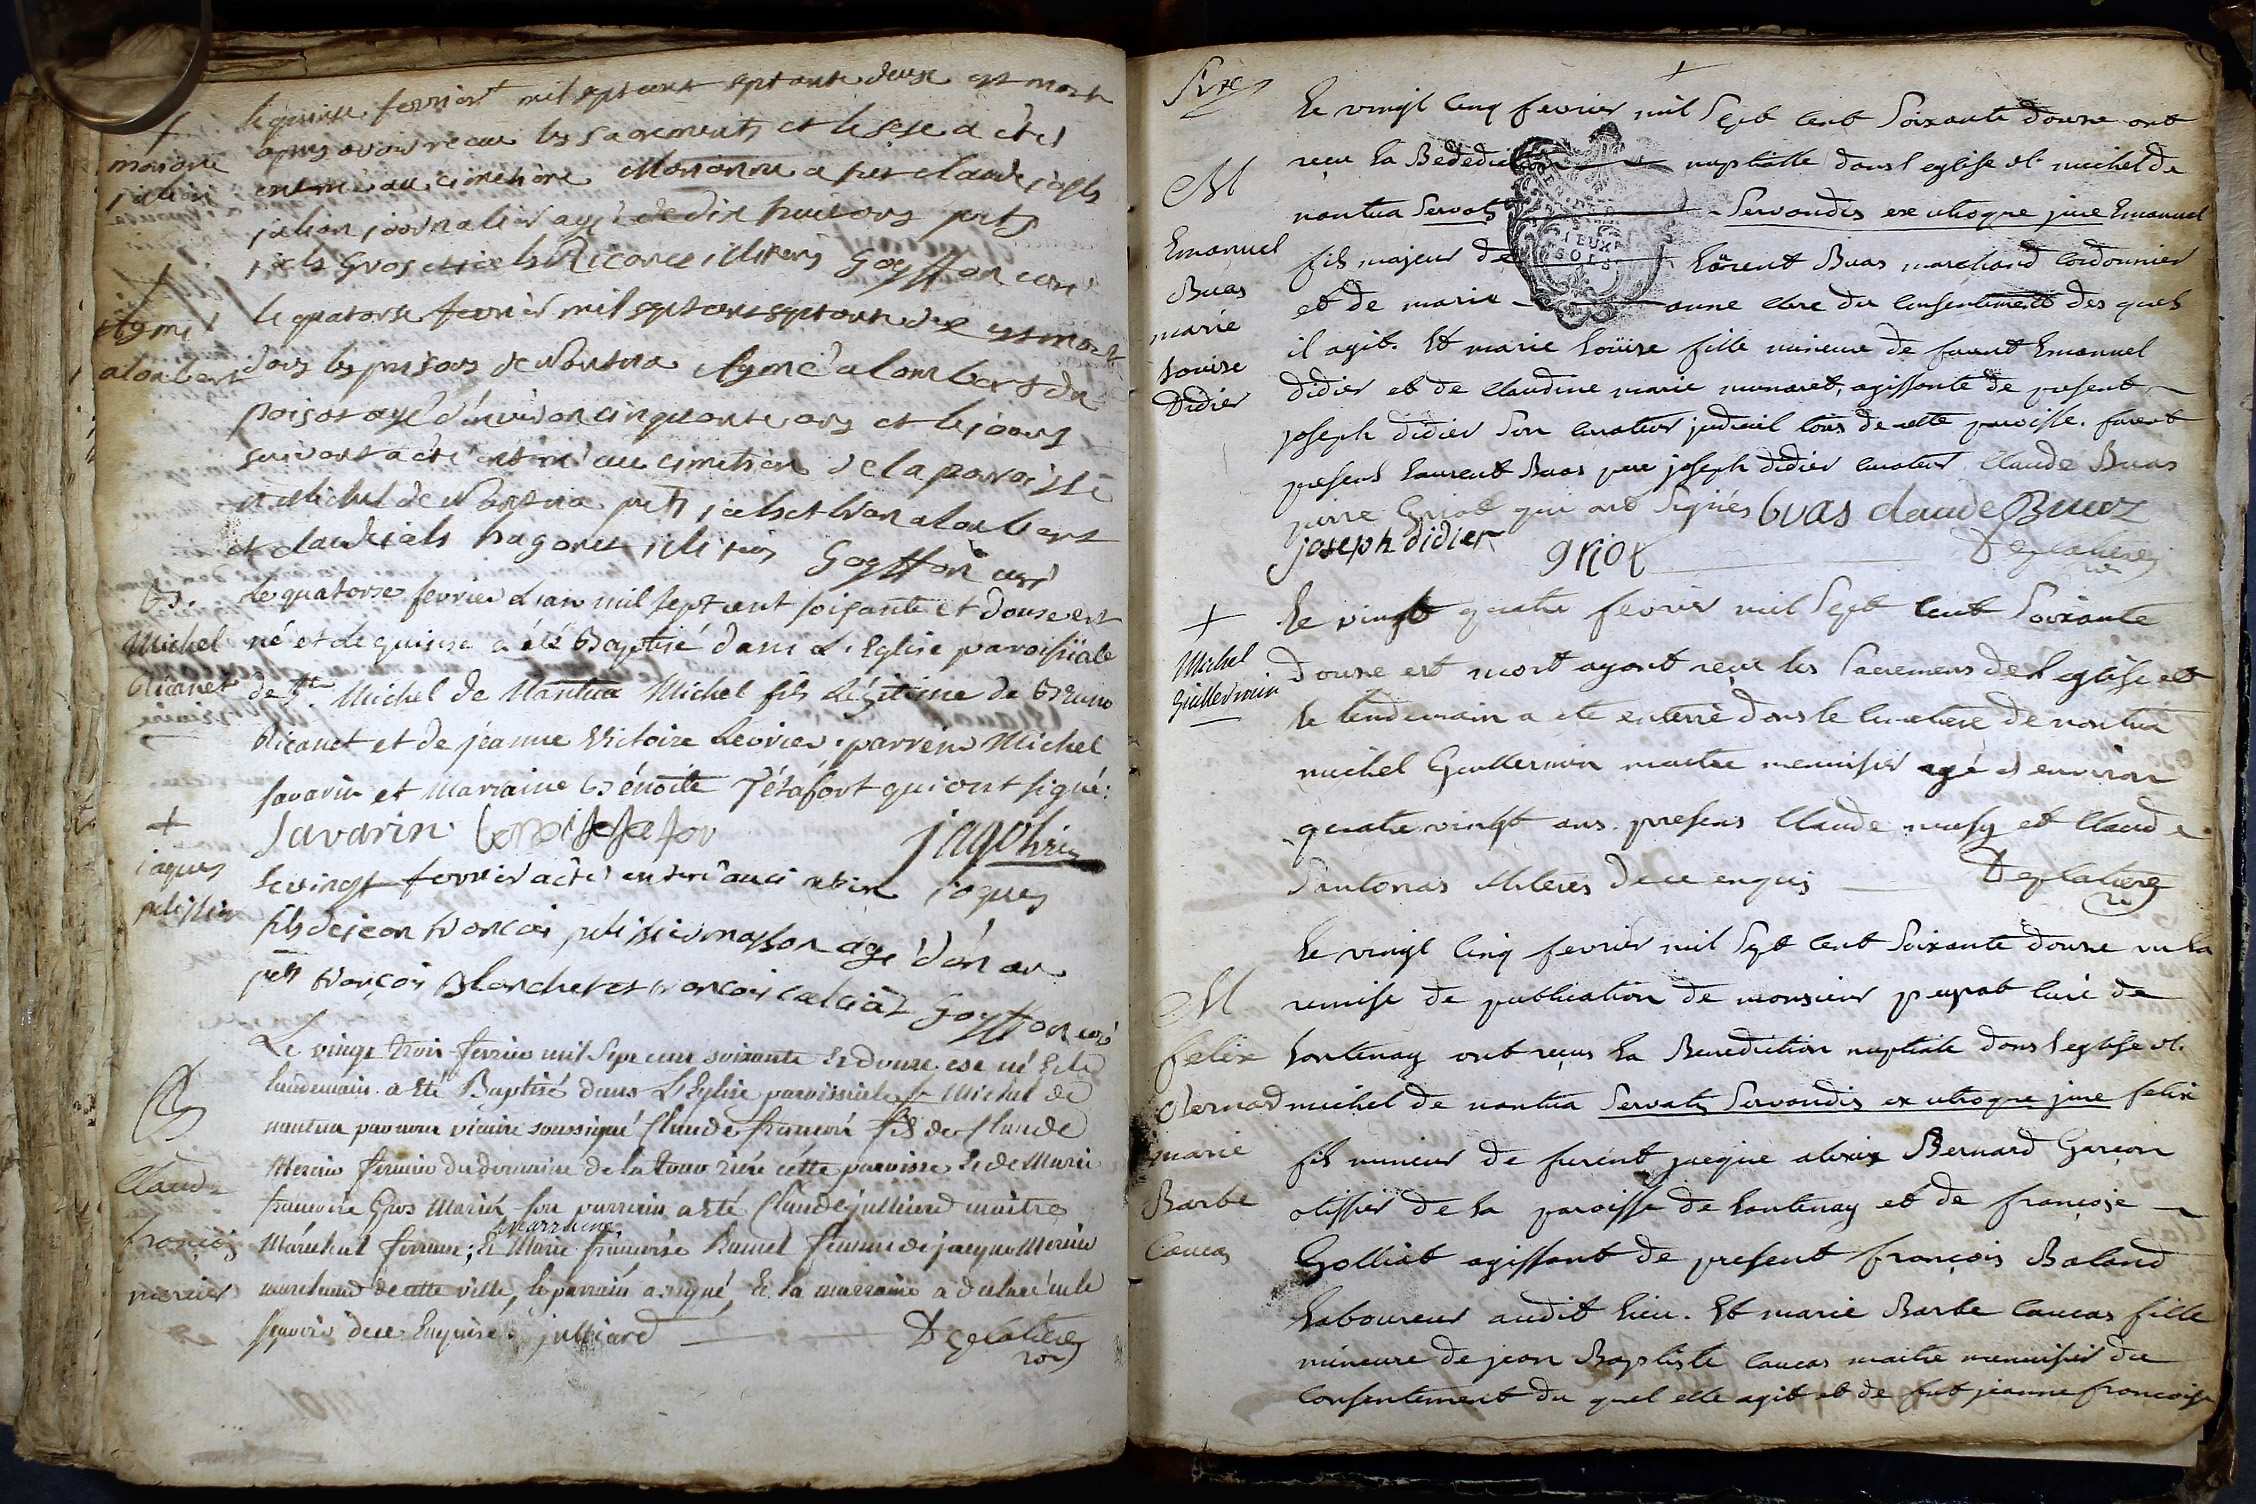 le quinse fevrier mil sept cent septante deux est mort
apres avoir reçu les sacrements et le sese a été
enterré au cimetiere Marianne a feu claude
julian journalier agé de dix huit ans
Goyffon curé
+
marianne
julian
le quatorse fevrier mil sept cent septante deux est mort
dans les prisons de Nantua Aymé alombert du
poisat agé d'environ cinquante ans et le jour
suivant a été enterré au cimetiere de la paroisse
st Michel de Nantua alombert
et claude Goyffon curé
Aymé
alombert
Le quatorse fevrier L'an mil sept cent soisante et douse est
né et le quinse a été Baptisé dans L'Eglise paroissiale
de St. Michel de Nantua Michel fils Légitime de Bruno
Ricanet et de jeanne Victoire Levrier. parrein Michel
Savarin et Marraine Bénoite Tétafort qui ont signé:
Savarin
B.
Michel
Ricanet
le vingt fevrier a été enterré au cimetiere jaques
fils de jean françois pelissier masson agé d'un an
françois Blanchet et françois Goyffon curé
+
jaques
pelissier
Le vingt trois fevrier mil sept cent soixante et douze est né et le
lendemain a été Baptisé dans L'Eglise paroissiale st Michel de
nantua par nous vicaire soussigné Claude françois fils de Claude
Mercier fermier du domaine de la cette paroisse et de Marie
francoise Gros Mariés son parrain a été Claude julliard maitre
Maréchal ferrant; Et marraine Marie françoise femme de jacque Mercier
marchand de cette ville, le parrain a signé, Et la marraine a declaré ne le
sçavoir de ce Enquise. julliard
B
Claude
françois
mercier
Six
+
Le vingt cinq fevrier mil Sept Cent Soixante Douze ont
reçu La Bededic nuptialle dans l'eglise st. michel de
nantua Servatis Servandis ex utroque jure Emanuel
fils majeur de Lorent Buas marchand Cordonnier
et de marie anne Clerc du Consentiment des quels
il agit. Et marie Loüise fille mineure de furent Emanuel
Didier et de Claudine marie munaret, agissante de present
joseph didier Son Curateur judiciel tous de cette paroisse. furent
presens Laurent Buas pere joseph didier curateur Claude Buas
pierre Griot qui ont Signés Buas claude Buas
joseph didier griot
M
Emanuel
Buas
marie
Louise
Didier
Le vingt quatre fevrier mil Sept Cent Soixante
Douze est mort ayant reçu les Sacremens de l'eglise et
le lendemain a eté enterré dans le Cimetiere de nantua
michel Guillermin maitre menuisier agé d'environ
quatre vingt ans. presens Claude et Claude
Santonas illiterés de ce enquis
+
Michel
Guillermin
Le vingt Cinq fevrier mil Sept Cent Soixante Douze vu La
remise de publication de monsieur peyrat Curé de
Lantenay ont reçus La Benediction nuptiale dans l'eglise st.
michel de nantua Servatis Servandis ex utroque jure felix
fils mineur de furent jacque alexis Bernard Garçon
tissier de La paroisse de Lantenay et de françoise
Golliat agissant de present françois Baland
Laboureur audit Lieu. Et marie Barbe Caucas fille
mineure de jean Baptiste Caucas maitre menuisier du
Consentement du quel elle agit et de fut jeanne francoise
M
felix
Bernard
marie
Barbe
Caucas